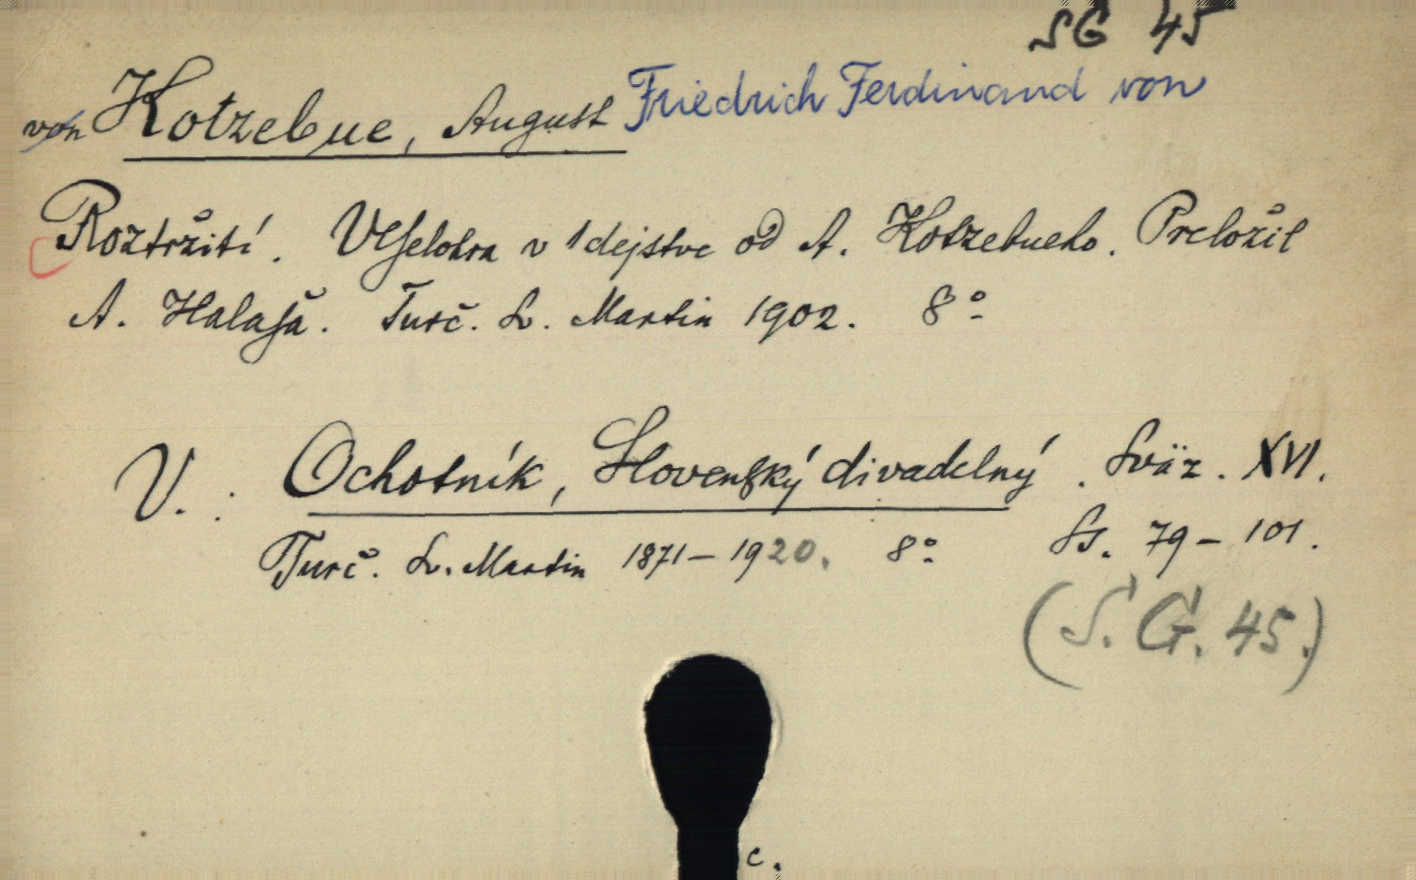 SG 45
von Kotzebue, August Friedrich Ferdinand von
Roztržití. Veselohra v 1 dejstve od A. Kotzebueho. Preložil
A. Halaša. Turč. Sv. Martin 1902. 8°
V. : Ochotník, Slovenský divadelný. Sväz. XVI.
Turč. Sv. Martin 1871–1920. 8° Ss. 79–101.
(S. G. 45.)
c.